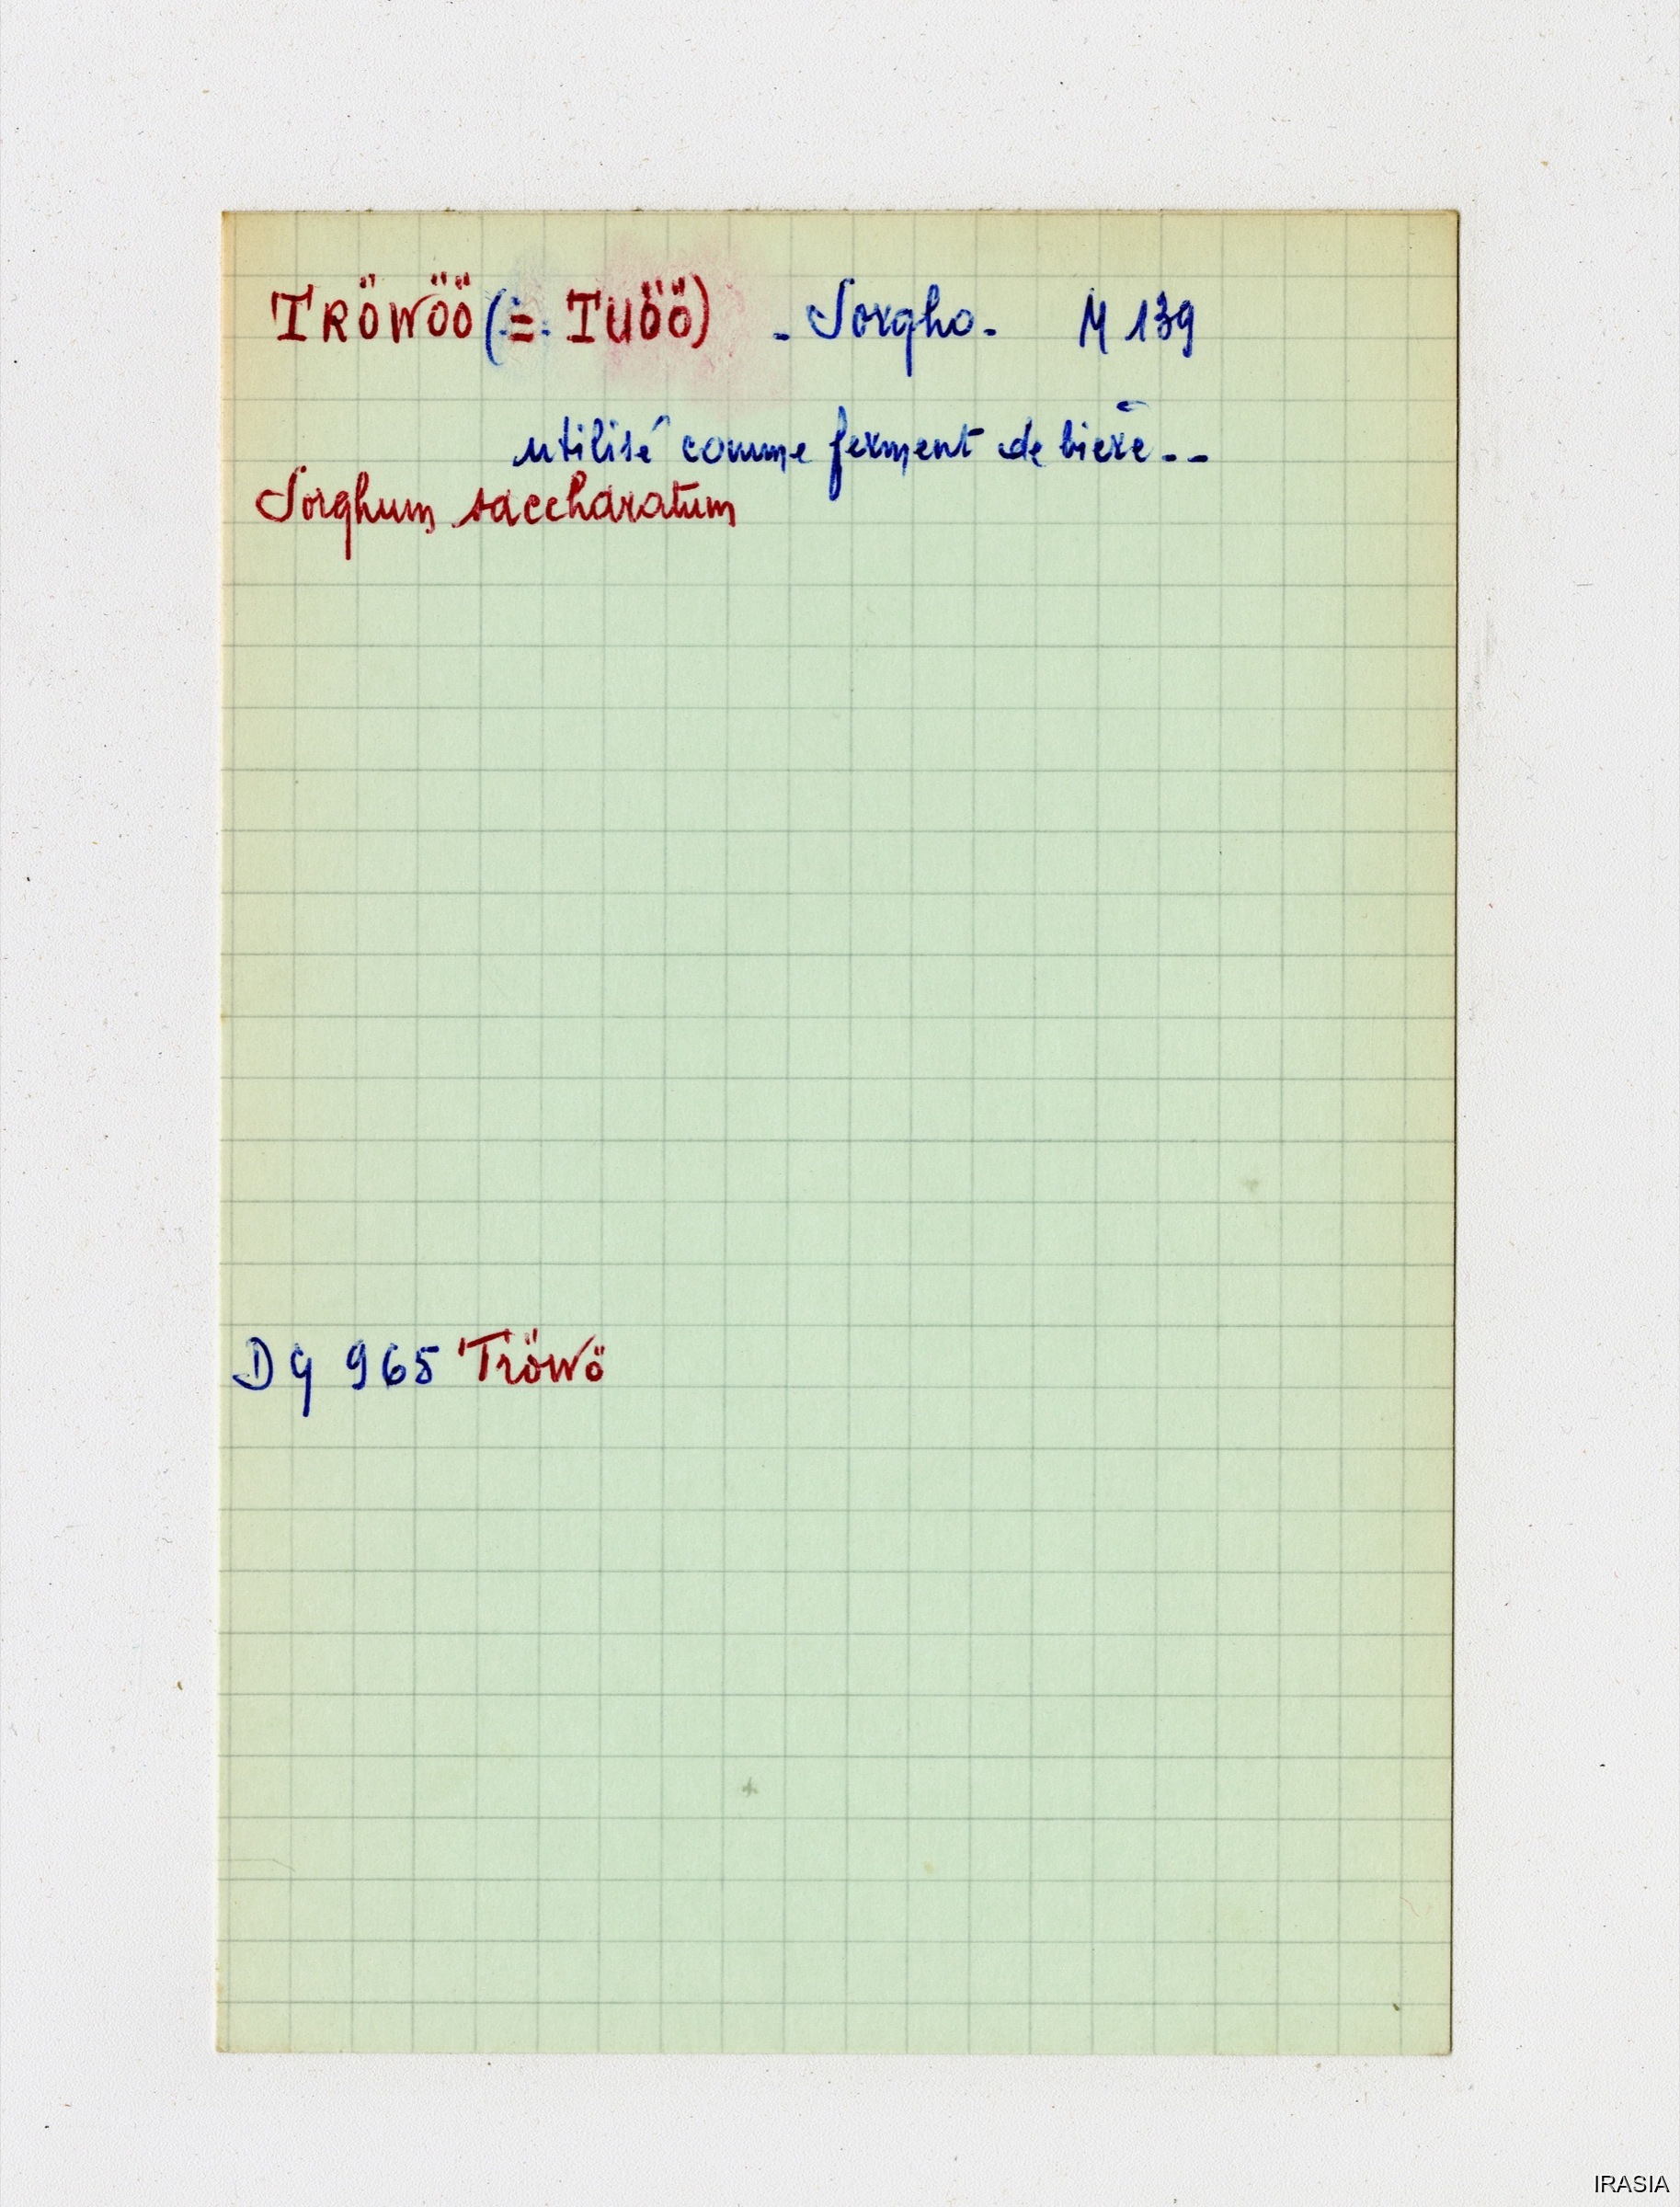 TRÖWÖÖ (= TUÖÖ) - Sorgho - M 139
utilisé comme ferment de bière - -
Sorghum saccharatum
DY 965 Tröwö
IRASIA